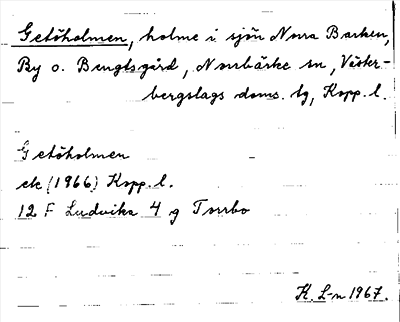 Getöholmen, holme i sjön Norra Barken,
By o. Bengtsgård, Norrbärke sn, Väster-
bergslags doms. tg, Kopp. l.
Getöholmen
ek (1966) Kopp. l.
12 F Ludvika 4 g Torrbo
K. L-n 1967.